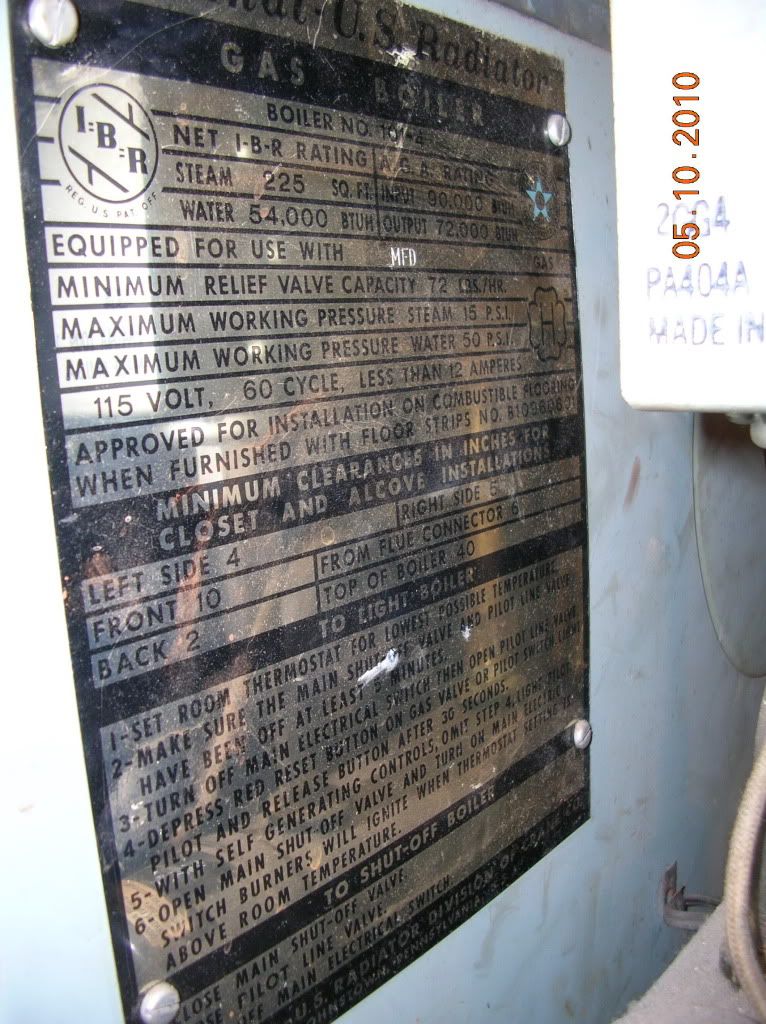 U.S. Radiator
GAS BOILER
BOILER NO.
I=B=R
REG. U.S. PAT. OFF.
NET I-B-R RATING A.G.A. RATING
STEAM 225 SQ. FT. INPUT 90,000 BTUH
WATER 54,000 BTUH OUTPUT 72,000 BTUH
EQUIPPED FOR USE WITH MFD GAS
MINIMUM RELIEF VALVE CAPACITY 72 LBS./HR.
MAXIMUM WORKING PRESSURE STEAM 15 P.S.I.
MAXIMUM WORKING PRESSURE WATER 50 P.S.I.
115 VOLT, 60 CYCLE, LESS THAN 12 AMPERES
APPROVED FOR INSTALLATION ON COMBUSTIBLE FLOORING
WHEN FURNISHED WITH FLOOR STRIPS NO.
MINIMUM CLEARANCES IN INCHES FOR
CLOSET AND ALCOVE INSTALLATIONS
LEFT SIDE 4 RIGHT SIDE
FRONT 10 FROM FLUE CONNECTOR 6
BACK 2 TOP OF BOILER 40
TO LIGHT BOILER
1-SET ROOM THERMOSTAT FOR LOWEST POSSIBLE TEMPERATURE.
2-MAKE SURE THE MAIN SHUT-OFF VALVE AND PILOT LINE VALVE
HAVE BEEN OFF AT LEAST 5 MINUTES.
3-TURN OFF MAIN ELECTRICAL SWITCH THEN OPEN PILOT LINE VALVE
4-DEPRESS RED RESET BUTTON ON GAS VALVE OR PILOT SWITCH LIGHT
PILOT AND RELEASE BUTTON AFTER 30 SECONDS.
5-WITH SELF GENERATING CONTROLS, OMIT STEP 4, LIGHT PILOT
6-OPEN MAIN SHUT-OFF VALVE AND TURN ON MAIN ELECTRIC
SWITCH BURNERS WILL IGNITE WHEN THERMOSTAT SETTING IS
ABOVE ROOM TEMPERATURE.
TO SHUT-OFF BOILER
CLOSE MAIN SHUT-OFF VALVE.
PILOT LINE VALVE.
OFF MAIN ELECTRICAL SWITCH
U.S. RADIATOR DIVISION OF CRANE CO.
JOHNSTOWN, PENNSYLVANIA,
PA404A
MADE IN
05.10.2010